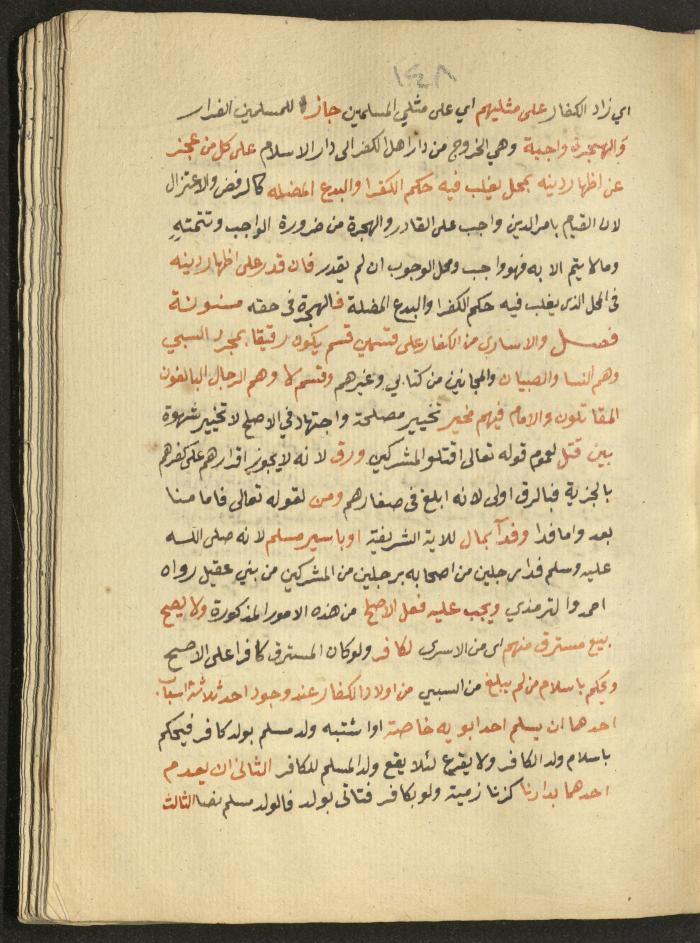 ١٤٨
اي زاد الكفار على مثليهم اي على مثلي المسلمين جاز للمسلمين الفرار
والهجرة واجبة وهي الخروج من دار اهل الكفر الى دار الاسلام على كل من عجز
عن اظهار دينه بمحل يغلب فيه حكم الكفر او البدع المضلة كالرفض والاعتزال
لان القيام بامر الدين واجب على القادر والهجرة من ضرورة الواجب وتتمته
وما لا يتم الا به فهو واجب ومحل الوجوب ان لم يقدر فان قدر على اظهار دينه
في المحل الذي يغلب فيه حكم الكفر او البدع المضلة فالهجرة في حقه مسنونة
فصل والاسارى من الكفار على قسمين قسم يكون رقيقا بمجرد السبي
وهم النسا والصبيان والمجانين من كتابي وغيرهم وقسم لا وهم الرجال البالغون
المقاتلون والامام فيهم مخير تخيير مصلحة واجتهاد في الاصلح لا تخيير شهوة
بين قتل لعموم قوله تعالى اقتلوا المشركين ورق لانه لا يجوز اقرارهم على كفرهم
بالجزية فبالرق اولى لانه ابلغ في صغارهم ومن لقوله تعالى فاما منا
بعد واما فدا وفدآ بمال للاية الشريفة او باسير مسلم لانه صلى الله
عليه وسلم فدا رجلين من اصحابه برجلين من المشركين من بني عقيل رواه
احمد والترمذي ويجب عليه فعل الاصلح من هذه الامور المذكورة ولا يصح
بيع مسترق منهم اي من الاسرى لكافر ولو كان المسترق كافرا على الاصح
ويحكم باسلام من لم يبلغ من السبي من اولاد الكفار عند وجود احد ثلاثة اسباب
احدها ان يسلم احد ابويه خاصة او اشتبه ولد مسلم بولد كافر فيحكم
باسلام ولد الكافر ولا يقرع لئلا يقع ولد المسلم للكافر الثاني ان يعدم
احدهما بدارنا كزنا ذمية ولو بكافر فتاتي بولد فالولد مسلم نصا الثالث